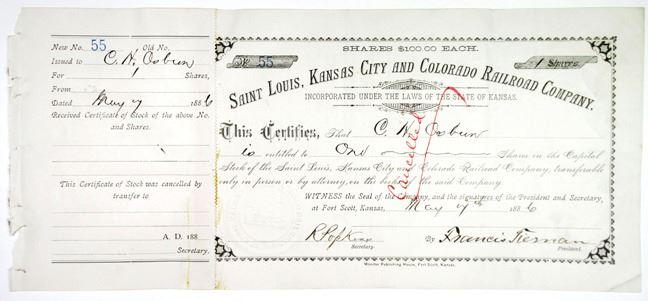 New No. 55 Old No.
Issued to C. H. Osburn
For 1 Shares,
From
Dated May 7 1886
Received Certificate of Stock of the above No.
and Shares.
This Certificate of Stock was cancelled by
transfer to
A. D. 188
Secretary.
SHARES $100.00 EACH.
No 55
1 Shares
SAINT LOUIS, KANSAS CITY AND COLORADO RAILROAD COMPANY.
INCORPORATED UNDER THE LAWS OF THE STATE OF KANSAS.
This Certifies, That C. H. Osburn
is entitled to One Shares in the Capital
Stock of the Saint Louis, Kansas City and Colorado Railroad Company, transferable
only in person or by attorney, on the books of the said Company.
WITNESS the Seal of the Company, and the signatures of the President and Secretary,
at Fort Scott, Kansas, May 7th 1886
Cancelled
Secretary.
By Francis Tiernan
President.
Monitor Publishing House, Fort Scott, Kansas.